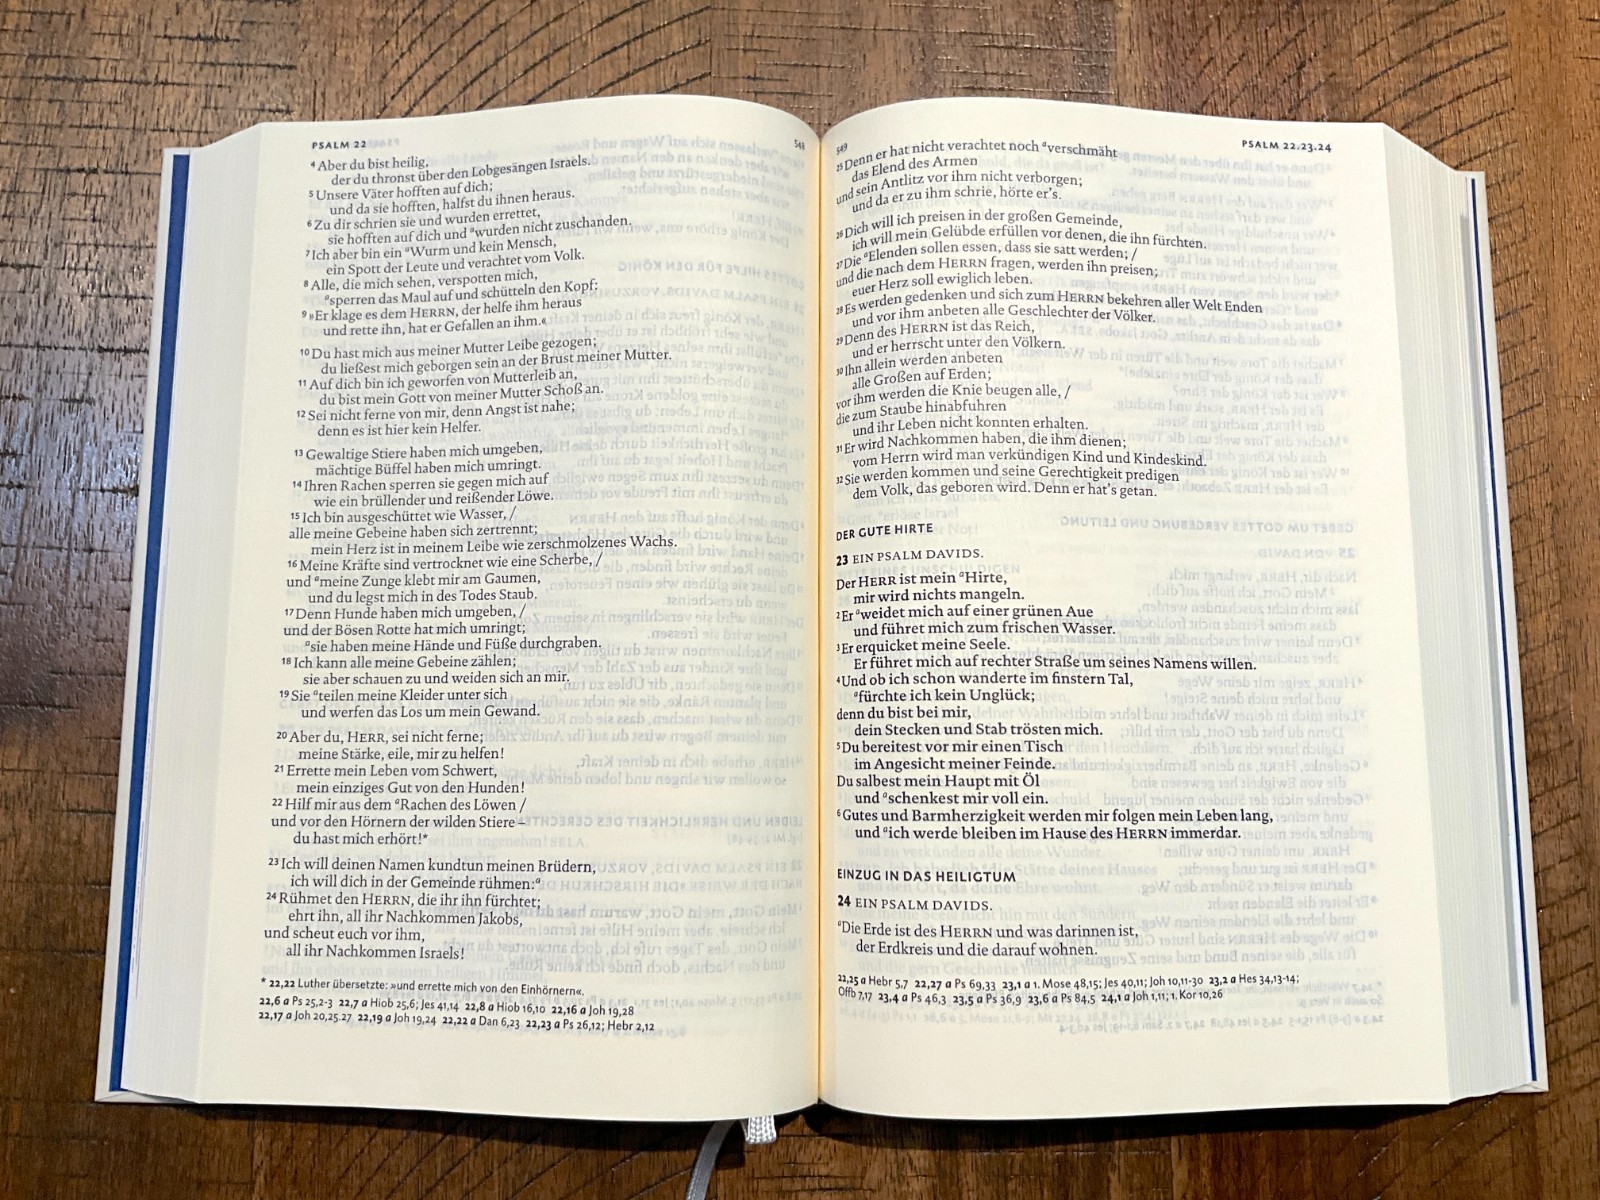 PSALM 22
548
⁴Aber du bist heilig,
der du thronst über den Lobgesängen Israels.
⁵Unsere Väter hofften auf dich;
und da sie hofften, halfst du ihnen heraus.
⁶Zu dir schrien sie und wurden errettet,
sie hofften auf dich und ᵃwurden nicht zuschanden.
⁷Ich aber bin ein ᵃWurm und kein Mensch,
ein Spott der Leute und verachtet vom Volk.
⁸Alle, die mich sehen, verspotten mich,
ᵃsperren das Maul auf und schütteln den Kopf:
⁹»Er klage es dem HERRN, der helfe ihm heraus
und rette ihn, hat er Gefallen an ihm.«
¹⁰Du hast mich aus meiner Mutter Leibe gezogen;
du ließest mich geborgen sein an der Brust meiner Mutter.
¹¹Auf dich bin ich geworfen von Mutterleib an,
du bist mein Gott von meiner Mutter Schoß an.
¹²Sei nicht ferne von mir, denn Angst ist nahe;
denn es ist hier kein Helfer.
¹³Gewaltige Stiere haben mich umgeben,
mächtige Büffel haben mich umringt.
¹⁴Ihren Rachen sperren sie gegen mich auf
wie ein brüllender und reißender Löwe.
¹⁵Ich bin ausgeschüttet wie Wasser, /
alle meine Gebeine haben sich zertrennt;
mein Herz ist in meinem Leibe wie zerschmolzenes Wachs.
¹⁶Meine Kräfte sind vertrocknet wie eine Scherbe, /
und ᵃmeine Zunge klebt mir am Gaumen,
und du legst mich in des Todes Staub.
¹⁷Denn Hunde haben mich umgeben, /
und der Bösen Rotte hat mich umringt;
ᵃsie haben meine Hände und Füße durchgraben.
¹⁸Ich kann alle meine Gebeine zählen;
sie aber schauen zu und weiden sich an mir.
¹⁹Sie ᵃteilen meine Kleider unter sich
und werfen das Los um mein Gewand.
²⁰Aber du, HERR, sei nicht ferne;
meine Stärke, eile, mir zu helfen!
²¹Errette mein Leben vom Schwert,
mein einziges Gut von den Hunden!
²²Hilf mir aus dem ᵃRachen des Löwen /
und vor den Hörnern der wilden Stiere –
du hast mich erhört!*
²³Ich will deinen Namen kundtun meinen Brüdern,
ich will dich in der Gemeinde rühmen:ᵃ
²⁴Rühmet den HERRN, die ihr ihn fürchtet;
ehrt ihn, all ihr Nachkommen Jakobs,
und scheut euch vor ihm,
all ihr Nachkommen Israels!
* 22,22 Luther übersetzte: »und errette mich von den Einhörnern«.
22,6 a Ps 25,2-3 22,7 a Hiob 25,6; Jes 41,14 22,8 a Hiob 16,10 22,16 a Joh 19,28
22,17 a Joh 20,25.27 22,19 a Joh 19,24 22,22 a Dan 6,23 22,23 a Ps 26,12; Hebr 2,12
549
PSALM 22.23.24
²⁵Denn er hat nicht verachtet noch ᵃverschmäht
das Elend des Armen
und sein Antlitz vor ihm nicht verborgen;
und da er zu ihm schrie, hörte er's.
²⁶Dich will ich preisen in der großen Gemeinde,
ich will mein Gelübde erfüllen vor denen, die ihn fürchten.
²⁷Die ᵃElenden sollen essen, dass sie satt werden; /
und die nach dem HERRN fragen, werden ihn preisen;
euer Herz soll ewiglich leben.
²⁸Es werden gedenken und sich zum HERRN bekehren aller Welt Enden
und vor ihm anbeten alle Geschlechter der Völker.
²⁹Denn des HERRN ist das Reich,
und er herrscht unter den Völkern.
³⁰Ihn allein werden anbeten
alle Großen auf Erden;
vor ihm werden die Knie beugen alle, /
die zum Staube hinabfuhren
und ihr Leben nicht konnten erhalten.
³¹Er wird Nachkommen haben, die ihm dienen;
vom Herrn wird man verkündigen Kind und Kindeskind.
³²Sie werden kommen und seine Gerechtigkeit predigen
dem Volk, das geboren wird. Denn er hat's getan.
DER GUTE HIRTE
23 EIN PSALM DAVIDS.
Der HERR ist mein ᵃHirte,
mir wird nichts mangeln.
²Er ᵃweidet mich auf einer grünen Aue
und führet mich zum frischen Wasser.
³Er erquicket meine Seele.
Er führet mich auf rechter Straße um seines Namens willen.
⁴Und ob ich schon wanderte im finstern Tal,
ᵃfürchte ich kein Unglück;
denn du bist bei mir,
dein Stecken und Stab trösten mich.
⁵Du bereitest vor mir einen Tisch
im Angesicht meiner Feinde.
Du salbest mein Haupt mit Öl
und ᵃschenkest mir voll ein.
⁶Gutes und Barmherzigkeit werden mir folgen mein Leben lang,
und ᵃich werde bleiben im Hause des HERRN immerdar.
EINZUG IN DAS HEILIGTUM
24 EIN PSALM DAVIDS.
ᵃDie Erde ist des HERRN und was darinnen ist,
der Erdkreis und die darauf wohnen.
22,25 a Hebr 5,7 22,27 a Ps 69,33 23,1 a 1. Mose 48,15; Jes 40,11; Joh 10,11-30 23,2 a Hes 34,13-14;
Offb 7,17 23,4 a Ps 46,3 23,5 a Ps 36,9 23,6 a Ps 84,5 24,1 a Joh 1,11; 1. Kor 10,26